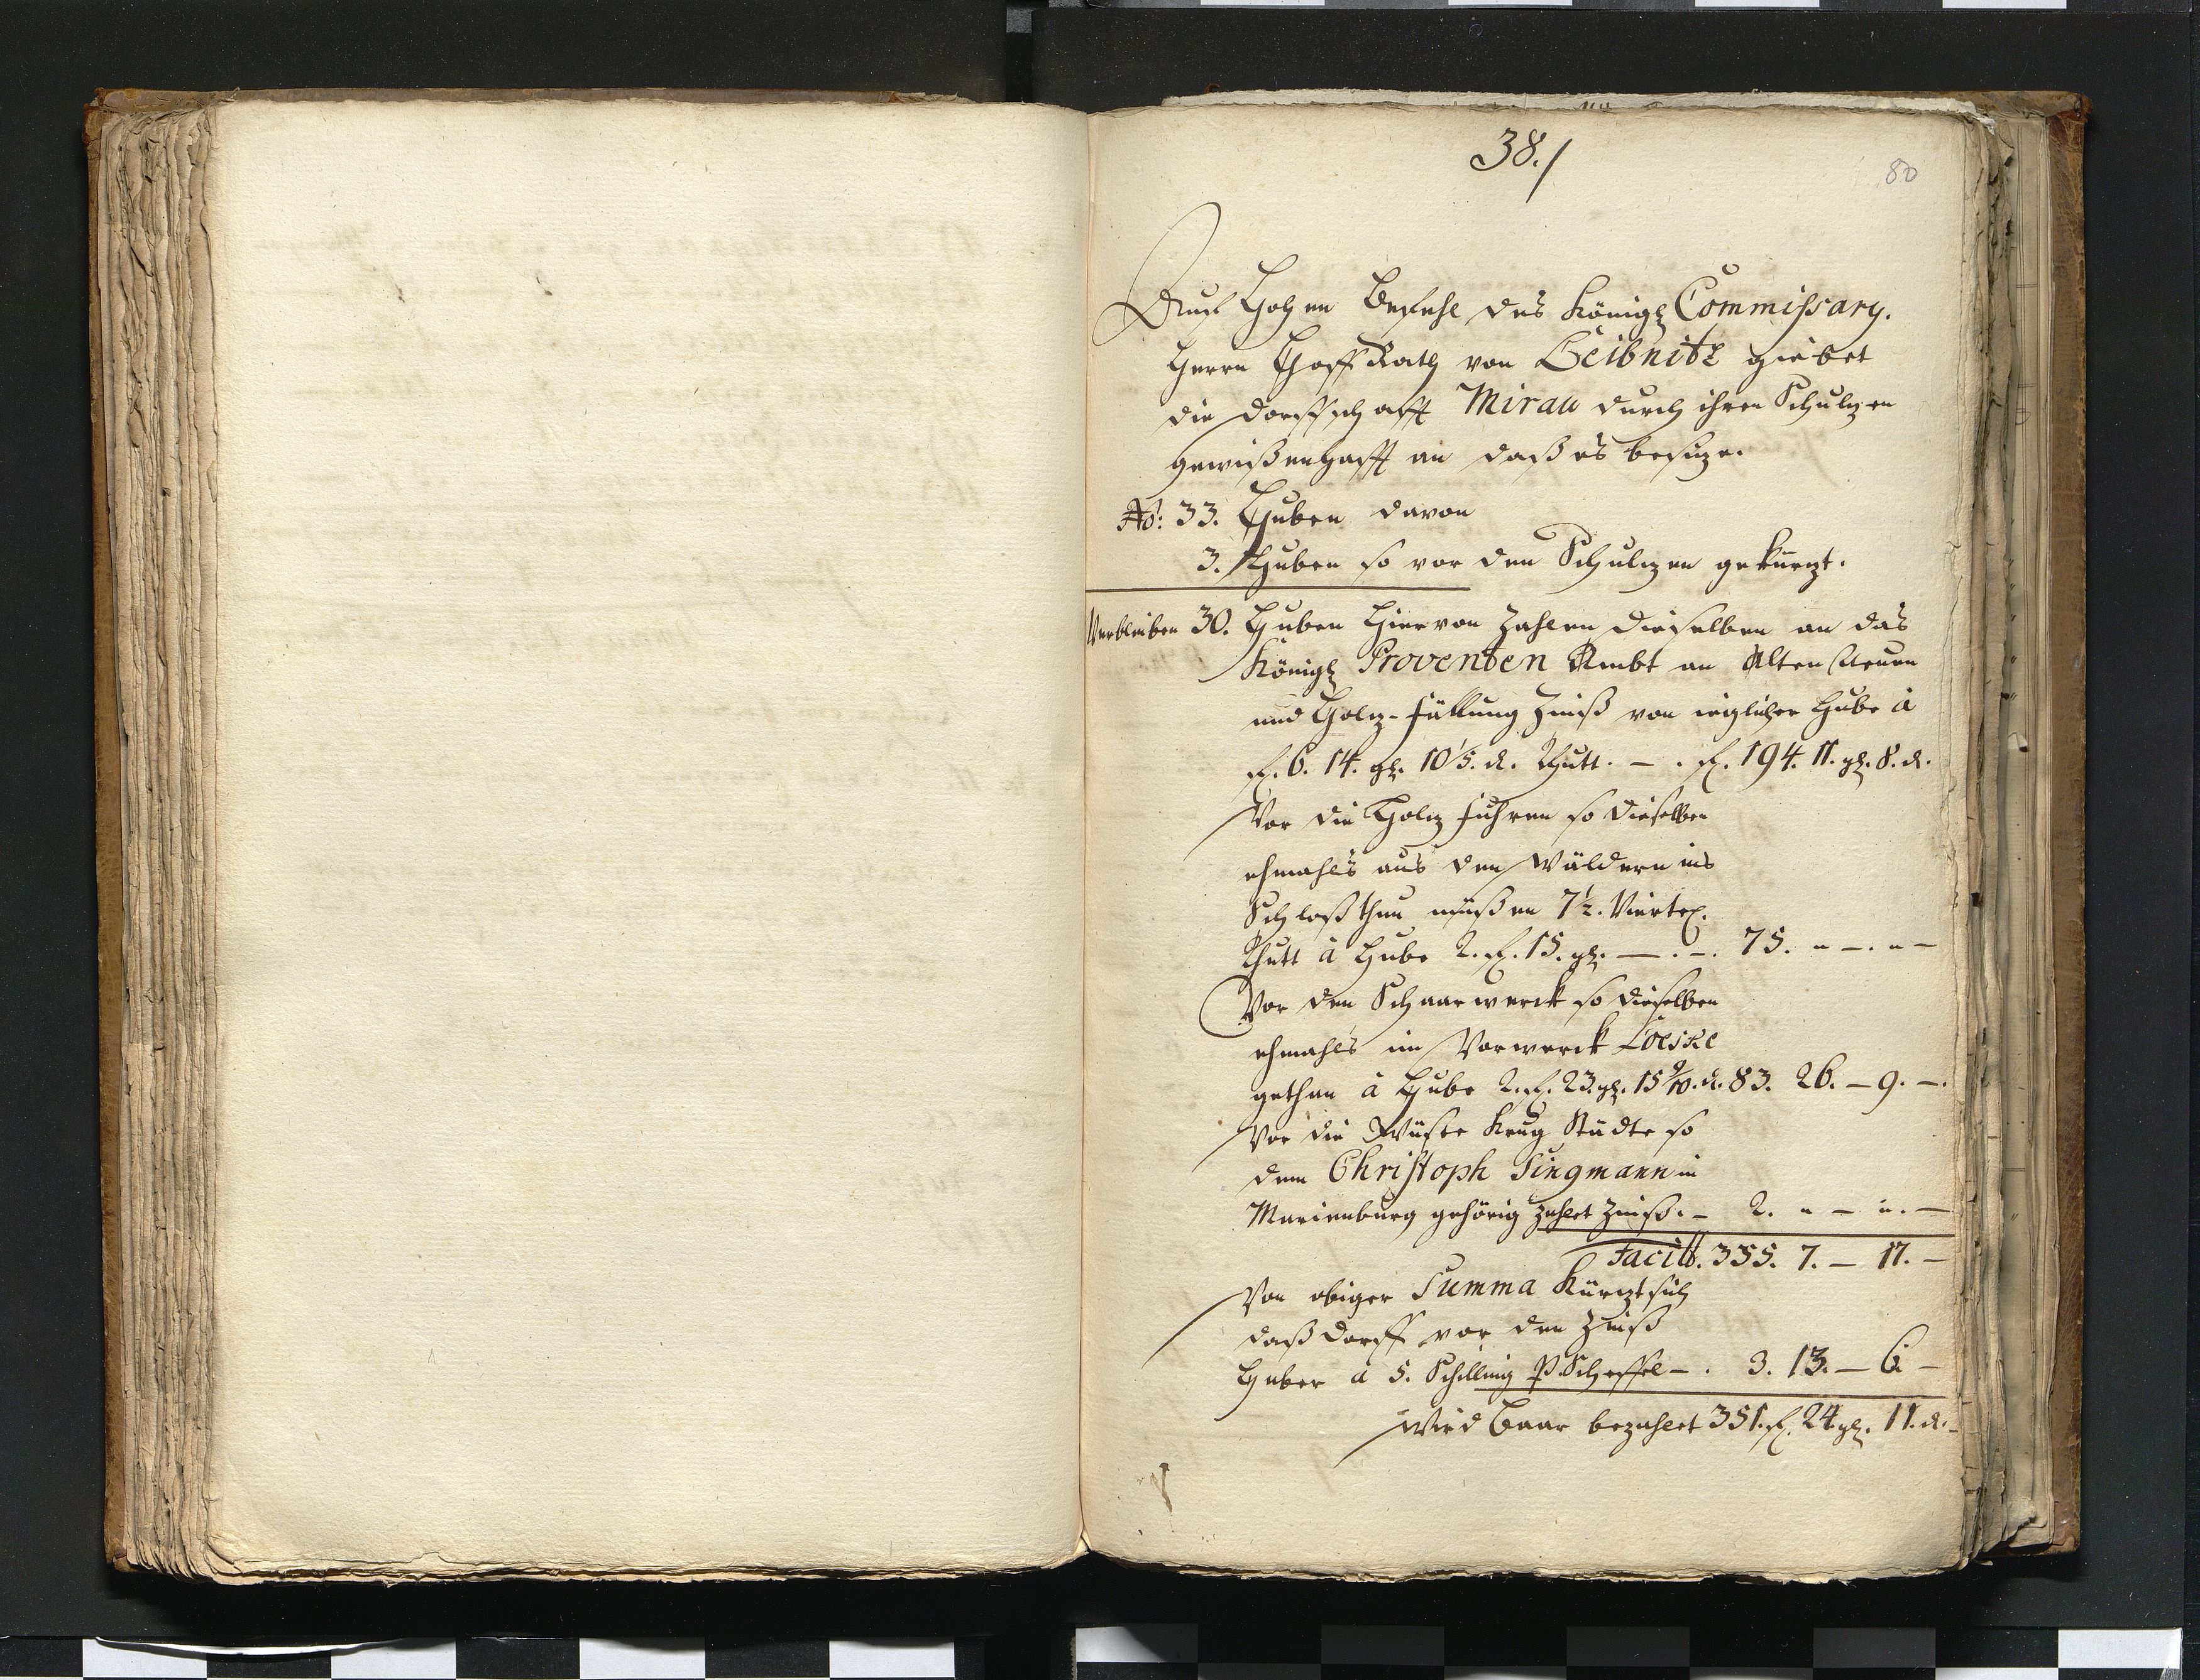 38./
80
Auf Hohen Befehl des Königl Commissary.
Herrn Hoff Rath von Leibnitz giebet
die Dorffschafft Mirau durch ihren Schultzen
gewißenhafft an daß es besitze.
No: 33. Huben davon
3. Huben so vor den Schultzen gekürtzt.
Verbleiben 30. Huben hiervon zahlen dieselben an das
Königl Proventen Ambt an Alten Neuen
und Holtz-fällung Zinß von ieglicher Hube à
fl. 6. 14. gl. 10 1/5. d. Thutt. — . fl. 194. 11. gl. 8. d.
Vor die Holtz fuhren so dieselben
ehmahls aus den Wäldern ins
Schloß thun müßen 7½. Viertel.
Thutt à Hube 2. fl. 15. gl. — . — . 75. " — . " —
Vor den Schaarwerck so dieselben
ehmahls im Vorwerck Loeske
gethan à Hube 2. fl. 23. gl. 15 9/10. d. 83. 26. — 9. —.
Vor die Wüste Krug Städte so
dem Christoph Singmann in
Marienburg gehörig zahlet Zinß. — 2. " — ". —
Facitt. 355. 7. — 17. —
Von obiger Summa Kürtzt sich
daß Dorff vor den Zinß
Haber à 5. Schilling P. Scheffel — . 3. 13. — 6. —
Wird Baar bezahlet 351. fl. 24. gl. 11. d. —